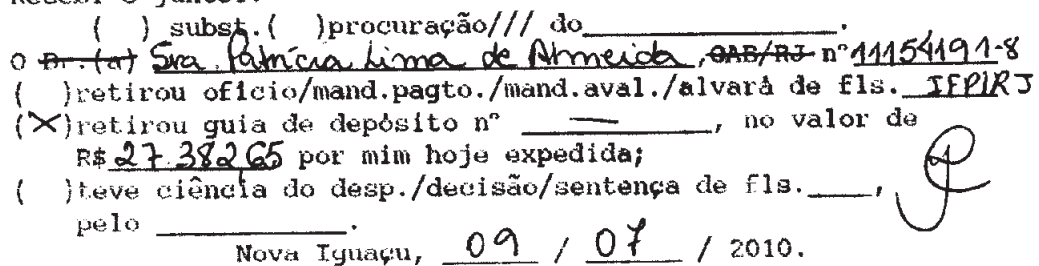 ( ) subst.( )procuração/// do____________.
O Dr.(a) Sra. Patrícia Lima de Almeida ,OAB/RJ nº 11154191-8
( )retirou ofício/mand.pagto./mand.aval./alvará de fls. IFP/RJ
(X)retirou guia de depósito nº ____—____, no valor de
R$ 27.382,65 por mim hoje expedida;
( )teve ciência do desp./decisão/sentença de fls.____,
pelo __________.
Nova Iguaçu, 09 / 07 / 2010.